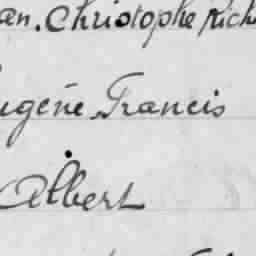 an. Christophe Rich
ugène Francis
Albert